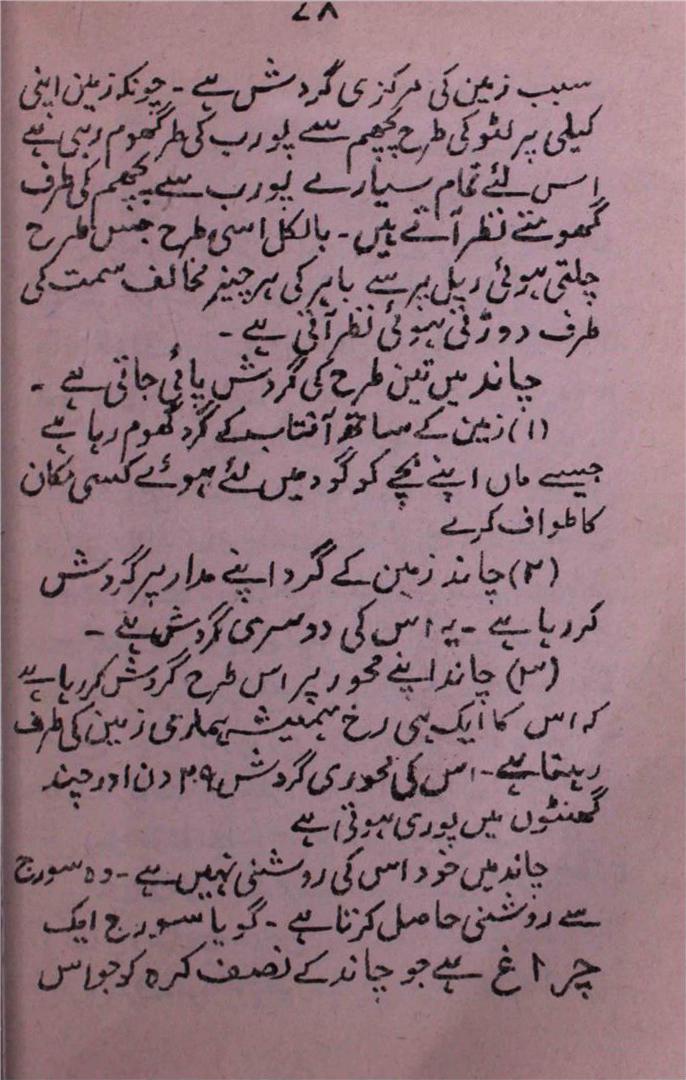 ۷۸
سبب زمین کی مرکزی گردش ہے ۔ چونکہ زمین اپنی
کیلی پر لٹو کی طرح پچھم سے پورب کی طر گھوم رہی ہے
اس لئے تمام سیارے پورب سے پچھم کی طرف
گھومتے نظر آتے ہیں ۔ بالکل اسی طرح جس طرح
چلتی ہوئی ریل پر سے باہر کی ہر چیز مخالف سمت کی
طرف دوڑتی ہوئی نظر آتی ہے ۔
چاند میں تین طرح کی گردش پائی جاتی ہے ۔
(۱) زمین کے ساتھ آفتاب کے گرد گھوم رہا ہے
جیسے ماں اپنے بچے کو گود میں لئے ہوئے کسی مکان
کا طواف کرے
(۲) چاند زمین کے گرد اپنے مدار پر گردش
کر رہا ہے ۔ یہ اس کی دوسری گردش ہے ۔
(۳) چاند اپنے محور پر اس طرح گردش کر رہا ہے
کہ اس کا ایک ہی رخ ہمیشہ ہماری زمین کی طرف
رہتا ہے ۔ اس کی محوری گردش ۲۹ دن اور چند
گھنٹوں میں پوری ہوتی ہے
چاند میں خود اس کی روشنی نہیں ہے ۔ وہ سورج
سے روشنی حاصل کرتا ہے ۔ گویا سورج ایک
چراغ ہے جو چاند کے نصف کرہ کو جو اس